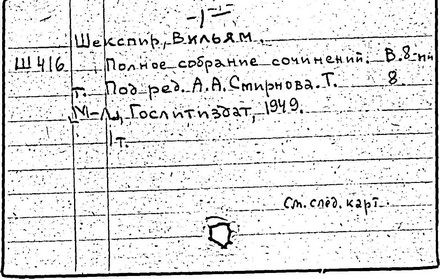 -1-
Шекспир, Вильям.
Ш416 Полное собрание сочинений. В. 8-ми
т. Под ред. А.А. Смирнова. Т. 8.
М-Л., Гослитиздат, 1949.
1 т.
См. след. карт.